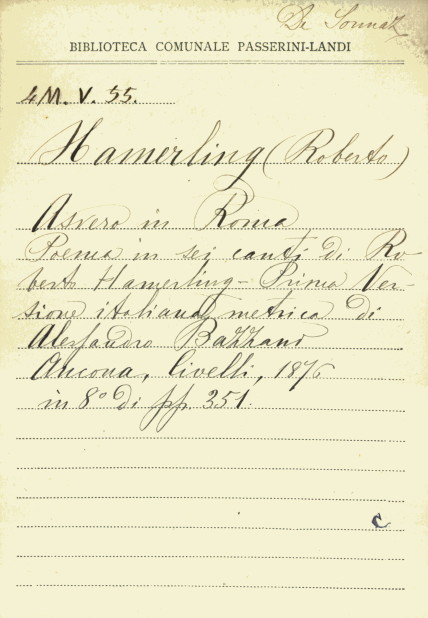 De Sonnaz
BIBLIOTECA COMUNALE PASSERINI-LANDI
4M. V. 55.
Hamerling (Roberto)
Asvero in Roma
Poema in sei canti di Ro-
berto Hamerling - Prima Ver-
sione italiana metrica di
Alessandro Bazzani
Ancona, Civelli, 1876
in 8º di pp. 351.
C